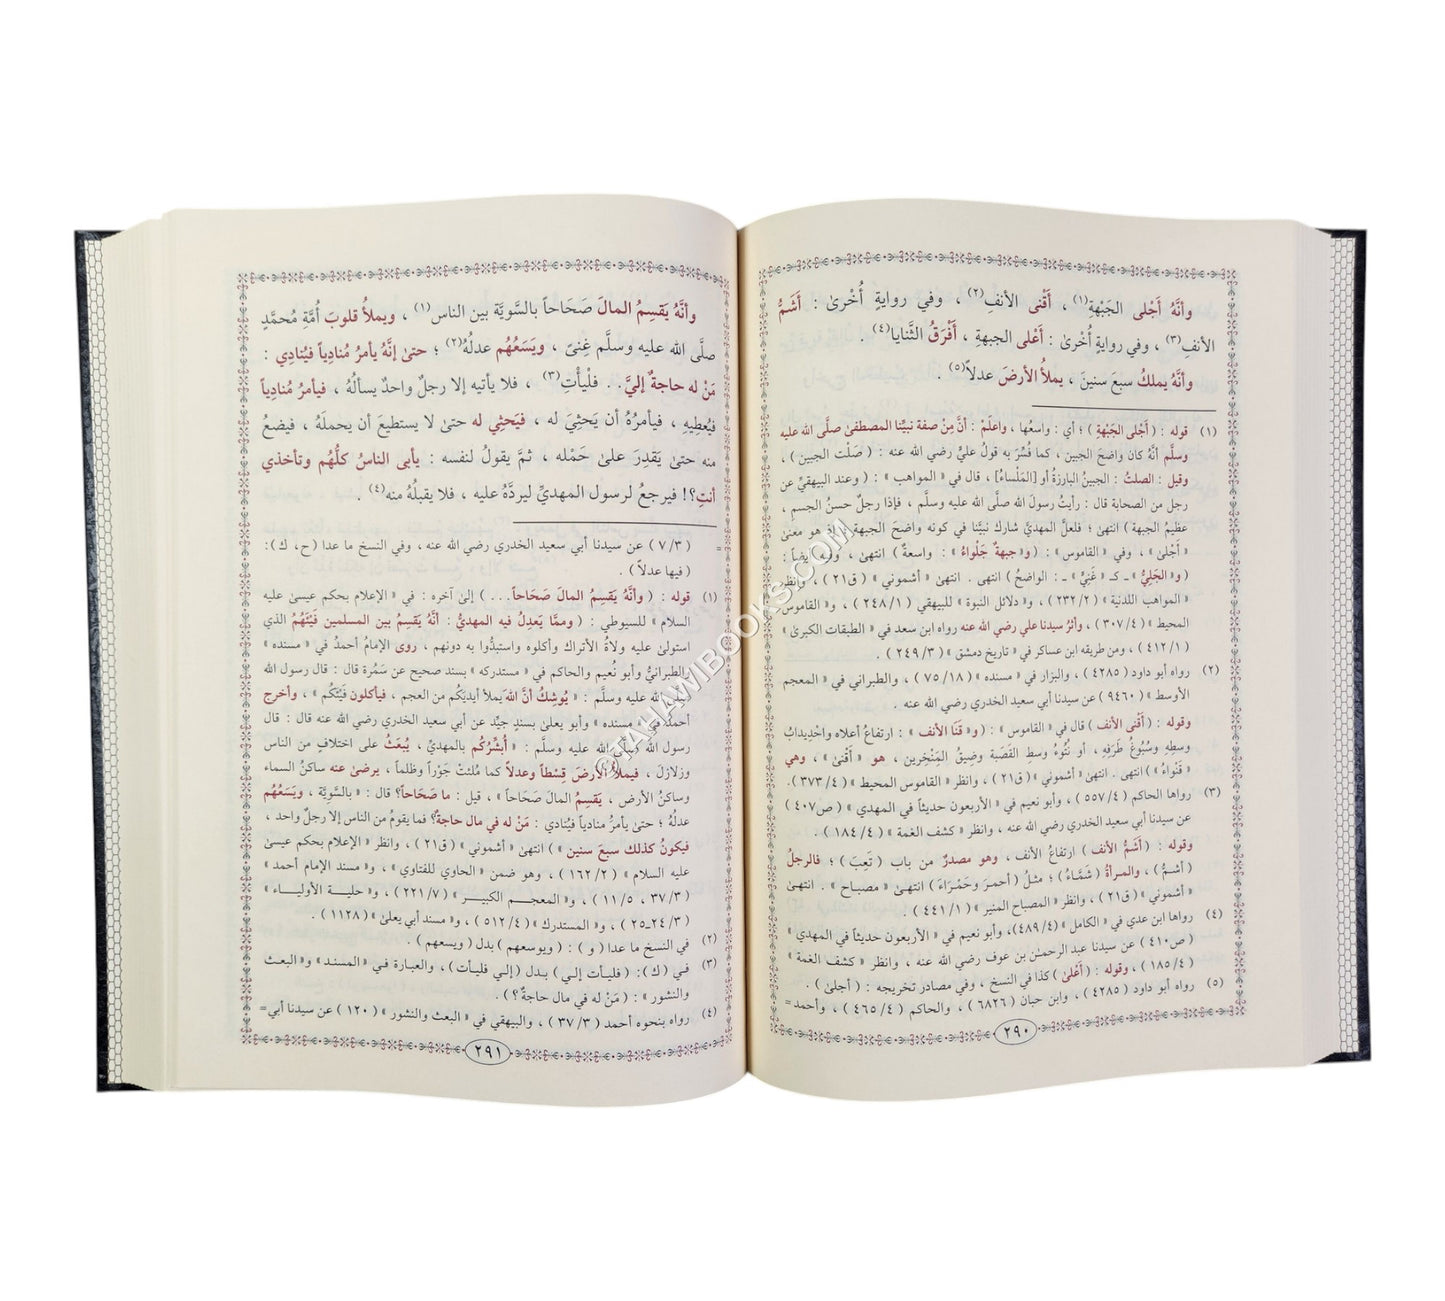 وأنَّهُ أَجْلى الجَبْهةِ(١) ، أَقْنى الأنفِ(٢) ، وفي روايةٍ أُخْرىٰ : أَشَمُّ
الأنفِ(٣) ، وفي روايةٍ أُخْرىٰ : أَعْلى الجبهةِ ، أَفْرَقُ الثَّنايا(٤) .
وأنَّهُ يملكُ سبعَ سنينَ ، يملأُ الأرضَ عدلاً(٥) .
(١) قوله : ( أَجْلى الجَبْهةِ ) ؛ أي : واسعُها ، واعلمْ : أنَّ مِنْ صفة نبيِّنا المصطفىٰ صلَّى الله عليه
وسلَّم أنَّهُ كان واضحَ الجبين ، كما فسَّرَ به قولُ عليٍّ رضي الله عنه : ( صَلْت الجبين ) ،
وقيل : الصلتُ : الجبينُ البارزةُ أو [المَلْساءُ] ، قال في « المواهب » : ( وعند البيهقيِّ عن
رجل من الصحابة قال : رأيتُ رسولَ الله صلَّى الله عليه وسلَّم ، فإذا رجلٌ حسنُ الجسمِ ،
عظيمُ الجبهة ) انتهىٰ ؛ فلعلَّ المهديَّ شارك نبيَّنا في كونه واضحَ الجبهةِ ؛ إذ هو معنىٰ
« أَجْلىٰ » ، وفي « القاموس » : ( و« جبهةٌ جَلْواءُ » : واسعةٌ ) انتهىٰ ، وفيه أيضاً :
( و« الجَلِيُّ » ـ كـ « غَنِيٍّ » ـ : الواضحُ ) انتهى . انتهىٰ « أشموني » ( ق٢١ ) ، وانظر
« المواهب اللدنية » ( ٢/ ٢٣٢ ) ، و« دلائل النبوة » للبيهقي ( ١/ ٢٤٨ ) ، و« القاموس
المحيط » ( ٤/ ٣٠٧ ) ، وأثرُ سيدنا علي رضي الله عنه رواه ابن سعد في « الطبقات الكبرىٰ »
( ١/ ٤١٢ ) ، ومن طريقه ابن عساكر في « تاريخ دمشق » ( ٣/ ٢٤٩ ) .
(٢) رواه أبو داود ( ٤٢٨٥ ) ، والبزار في « مسنده » ( ١٨/ ٧٥ ) ، والطبراني في « المعجم
الأوسط » ( ٩٤٦٠ ) عن سيدنا أبي سعيد الخدري رضي الله عنه .
وقوله : ( أَقْنى الأنف ) قال في « القاموس » : ( و« قَنَا الأنف » : ارتفاعُ أعلاه واحْدِيدابُ
وسطِهِ وسُبُوغُ طَرَفِهِ ، أو نُتُوءُ وسطِ القَصَبة وضِيقُ المَنْخِرين ، هو « أَقْنىٰ » ، وهي
« قَنْواءُ » ) انتهى . انتهىٰ « أشموني » ( ق٢١ ) ، وانظر « القاموس المحيط » ( ٤/ ٣٧٣ ).
(٣) رواها الحاكم ( ٤/ ٥٥٧ ) ، وأبو نعيم في « الأربعون حديثاً في المهدي » ( ص٤٠٧ )
عن سيدنا أبي سعيد الخدري رضي الله عنه ، وانظر « كشف الغمة » ( ٤/ ١٨٤ ) .
وقوله : ( أَشَمُّ الأنف ) ارتفاعُ الأنف ، وهو مصدرٌ من باب ( تَعِبَ ) ؛ فالرجلُ
( أشمُّ ) ، والمرأةُ ( شمَّاءُ ) ؛ مثلُ ( أحمرَ وحَمْراءَ ) انتهىٰ « مصباح » . انتهىٰ
« أشموني » ( ق٢١ ) ، وانظر « المصباح المنير » ( ١/ ٤٤١ ) .
(٤) رواها ابن عدي في « الكامل » ( ٤/ ٤٨٩ )، وأبو نعيم في « الأربعون حديثاً في المهدي »
( ص٤١٠ ) عن سيدنا عبد الرحمـٰن بن عوف رضي الله عنه ، وانظر « كشف الغمة »
( ٤/ ١٨٥ ) ، وقوله : ( أَعْلىٰ ) كذا في النسخ ، وفي مصادر تخريجه : ( أجلىٰ ) .
(٥) رواه أبو داود ( ٤٢٨٥ ) ، وابن حبان ( ٦٨٢٦ ) ، والحاكم ( ٤/ ٤٦٥ ) ، وأحمد =
٢٩٠
وأنَّهُ يَقسِمُ المالَ صَحَاحاً بالسَّويَّة بين الناس(١) ، ويملأُ قلوبَ أُمَّةِ مُحمَّدٍ
صلَّى الله عليه وسلَّم غِنىً ، ويَسَعُهُم عدلُهُ(٢) ؛ حتىٰ إنَّهُ يأمرُ مُنادِياً فيُنادِي :
مَنْ له حاجةٌ إليَّ . . فلْيأْتِ(٣) ، فلا يأتيه إلا رجلٌ واحدٌ يسألُهُ ، فيأمرُ مُنادِياً
فيُعطِيهِ ، فيأمرُهُ أن يَحثِيَ له ، فيَحثِي له حتىٰ لا يستطيعَ أن يحملَهُ ، فيضعُ
منه حتىٰ يَقدِرَ علىٰ حَمْله ، ثمَّ يقولُ لنفسه : يأبى الناسُ كلُّهُم وتأخذي
أنتِ؟! فيرجعُ لرسول المهديِّ ليردَّهُ عليه ، فلا يقبلُهُ منه(٤) .
= ( ٣/ ٧ ) عن سيدنا أبي سعيد الخدري رضي الله عنه ، وفي النسخ ما عدا ( ح ، ك ) :
( فيها عدلاً ) .
(١) قوله : ( وأنَّهُ يَقسِمُ المالَ صَحَاحاً . . . ) إلىٰ آخره : في « الإعلام بحكم عيسىٰ عليه
السلام » للسيوطي : ( وممَّا يَعدِلُ فيه المهديُّ : أنَّهُ يَقسِمُ بين المسلمين فَيْئَهُمُ الذي
استولىٰ عليه ولاةُ الأتراك وأكلوه واستبدُّوا به دونهم ، روى الإمامُ أحمدُ في « مسنده »
والطبرانيُّ وأبو نُعيم والحاكم في « مستدركه » بسند صحيح عن سَمُرة قال : قال رسول الله
صلَّى الله عليه وسلَّم : « يُوشِكُ أنَّ اللهَ يملأ أيديَكُم من العجم ، فيأكلون فَيْئَكُم » ، وأخرج
أحمدُ في « مسنده » وأبو يعلىٰ بسندٍ جيِّد عن أبي سعيد الخدري رضي الله عنه قال : قال
رسول الله صلَّى الله عليه وسلَّم : « أُبشِّرُكُم بالمهديِّ ، يُبعَثُ على اختلافٍ من الناس
وزلازلَ ، فيملأُ الأرضَ قِسْطاً وعدلاً كما مُلئتْ جَوْراً وظلماً ، يرضىٰ عنه ساكنُ السماء
وساكنُ الأرض ، يَقسِمُ المالَ صَحَاحاً » ، قيل : ما صَحَاحاً؟ قال : « بالسَّويَّة ، ويَسَعُهُم
عدلُهُ ؛ حتىٰ يأمرُ منادياً فيُنادِي : مَنْ له في مال حاجةٌ؟ فما يقومُ من الناس إلا رجلٌ واحد ،
فيكونُ كذلك سبعَ سنين » ) انتهىٰ « أشموني » ( ق٢١ ) ، وانظر « الإعلام بحكم عيسىٰ
عليه السلام » ( ٢/ ١٦٢ ) ، وهو ضمن « الحاوي للفتاوي » ، و« مسند الإمام أحمد »
( ٣/ ٣٧ ، ٥/ ١١ ) ، و« المعجـــم الكبيـــر » ( ٧/ ٢٢١ ) ، و« حليـــة الأوليـــاء »
( ٣/ ٢٤ـ٢٥ ) ، و« المستدرك » ( ٤/ ٥١٢ ) ، و« مسند أبي يعلىٰ » ( ١١٢٨ ) .
(٢) في النسخ ما عدا ( و ) : ( ويوسعهم ) بدل ( ويسعهم ) .
(٣) في ( ك ) : ( فليأت إلي ) بدل ( إلي فليأت ) ، والعبارة في « المسند » و« البعث
والنشور » : ( مَنْ له في مال حاجةٌ ؟ ) .
(٤) رواه بنحوه أحمد ( ٣/ ٣٧ ) ، والبيهقي في « البعث والنشور » ( ١٢٠ ) عن سيدنا أبي =
٢٩١
TAHAWIBOOKS.COM